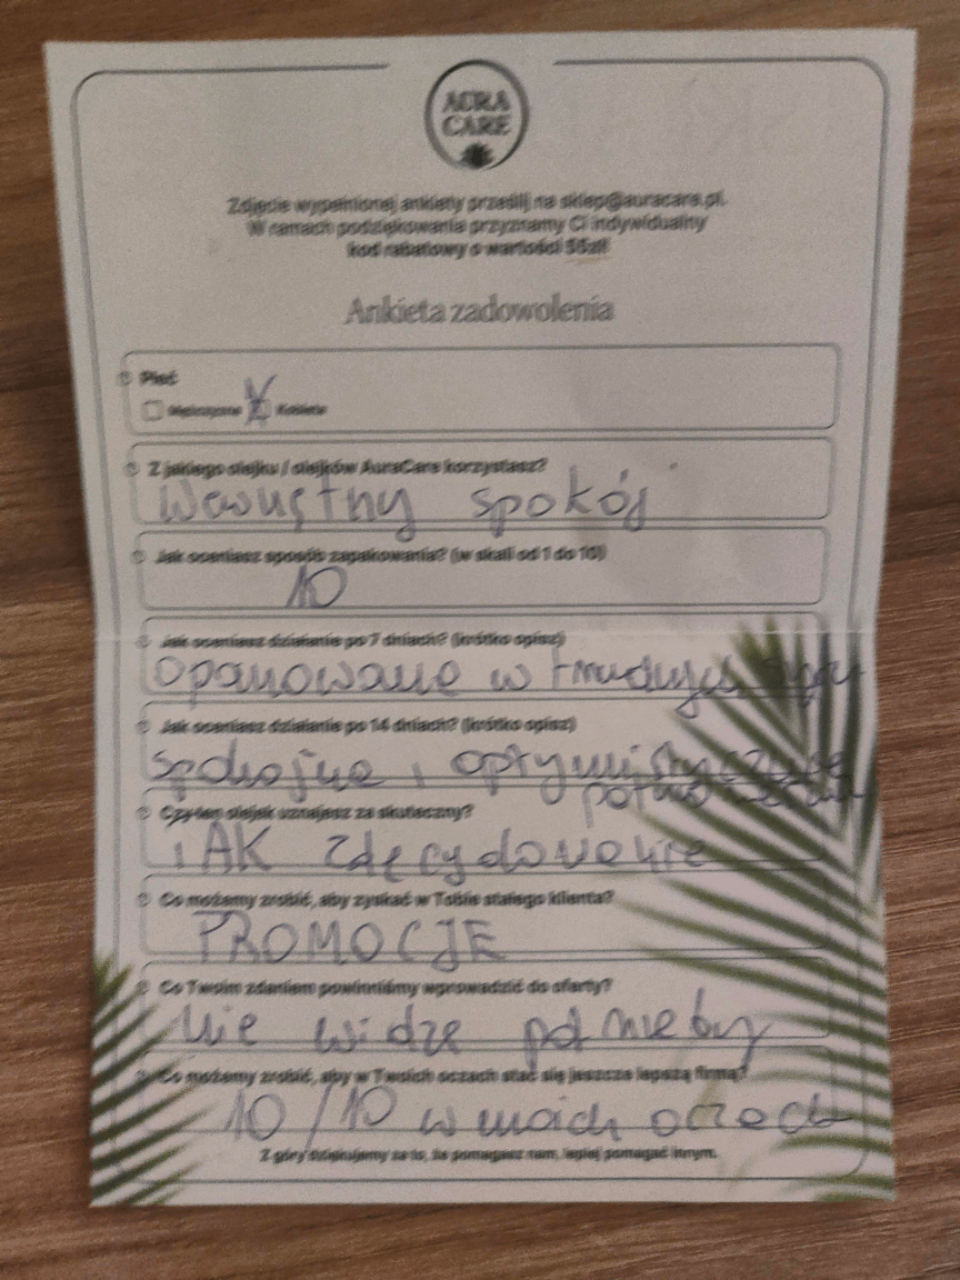 AURA
CARE
Zdjęcie wypełnionej ankiety prześlij na sklep@auracare.pl.
W ramach podziękowania przyznamy Ci indywidualny
kod rabatowy o wartości 55zł!
Ankieta zadowolenia
Płeć
Mężczyzna Kobieta
Z jakiego olejku / olejków AuraCare korzystasz?
Wewnętrzny spokój
Jak oceniasz sposób zapakowania? (w skali od 1 do 10)
10
Jak oceniasz działanie po 7 dniach? (krótko opisz)
opanowane w trudnych
Jak oceniasz działanie po 14 dniach? (krótko opisz)
spokojne i optymistyczne
Czy ten olejek uznajesz za skuteczny?
TAK zdecydowanie
Co możemy zrobić, aby zyskać w Tobie stałego klienta?
PROMOCJE
Co Twoim zdaniem powinniśmy wprowadzić do oferty?
Nie widzę potrzeby
Co możemy zrobić, aby w Twoich oczach stać się jeszcze lepszą firmą?
10/10 w moich oczach
Z góry dziękujemy za to, że pomagasz nam, lepiej pomagać innym.